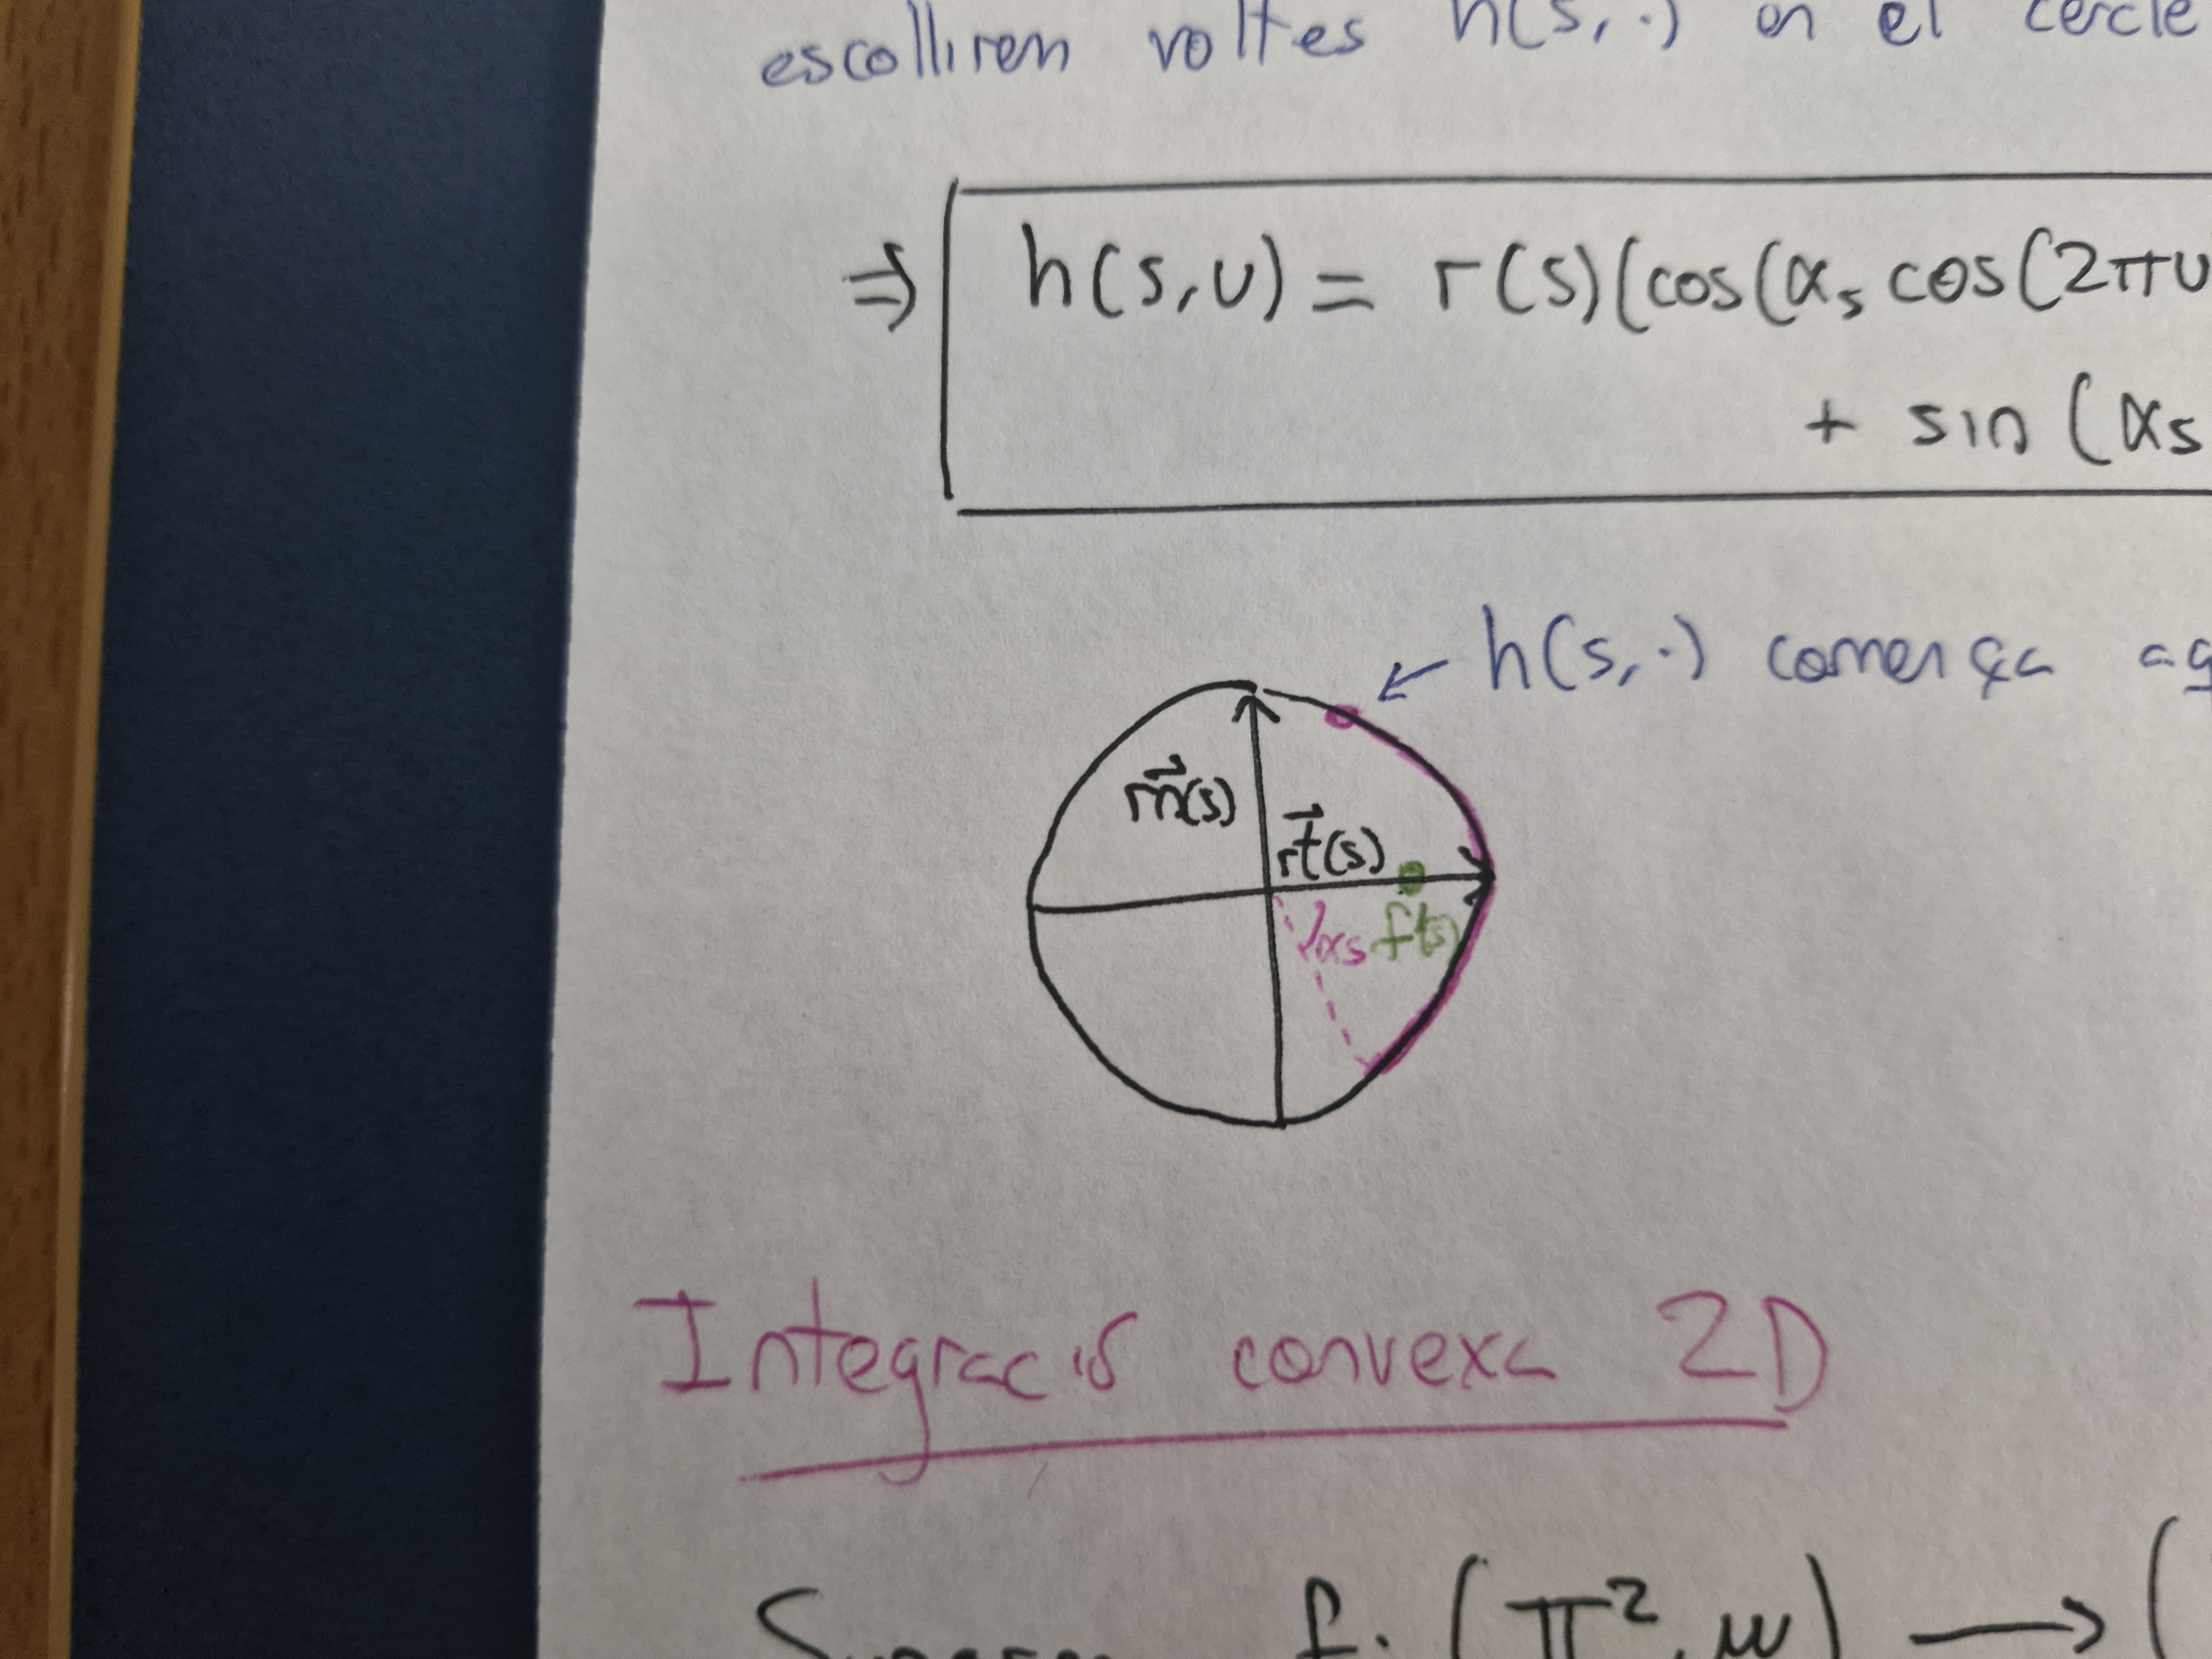 escollirem voltes h(s,·) en el cercle
⇒ h(s,u) = r(s)(cos(αs cos(2πu
+ sin(αs
h(s,·) comença aq
rn⃗(s)
rt⃗(s)
αs f'(s)
Integració convexa 2D
f: (𝕋², μ) ⟶ (